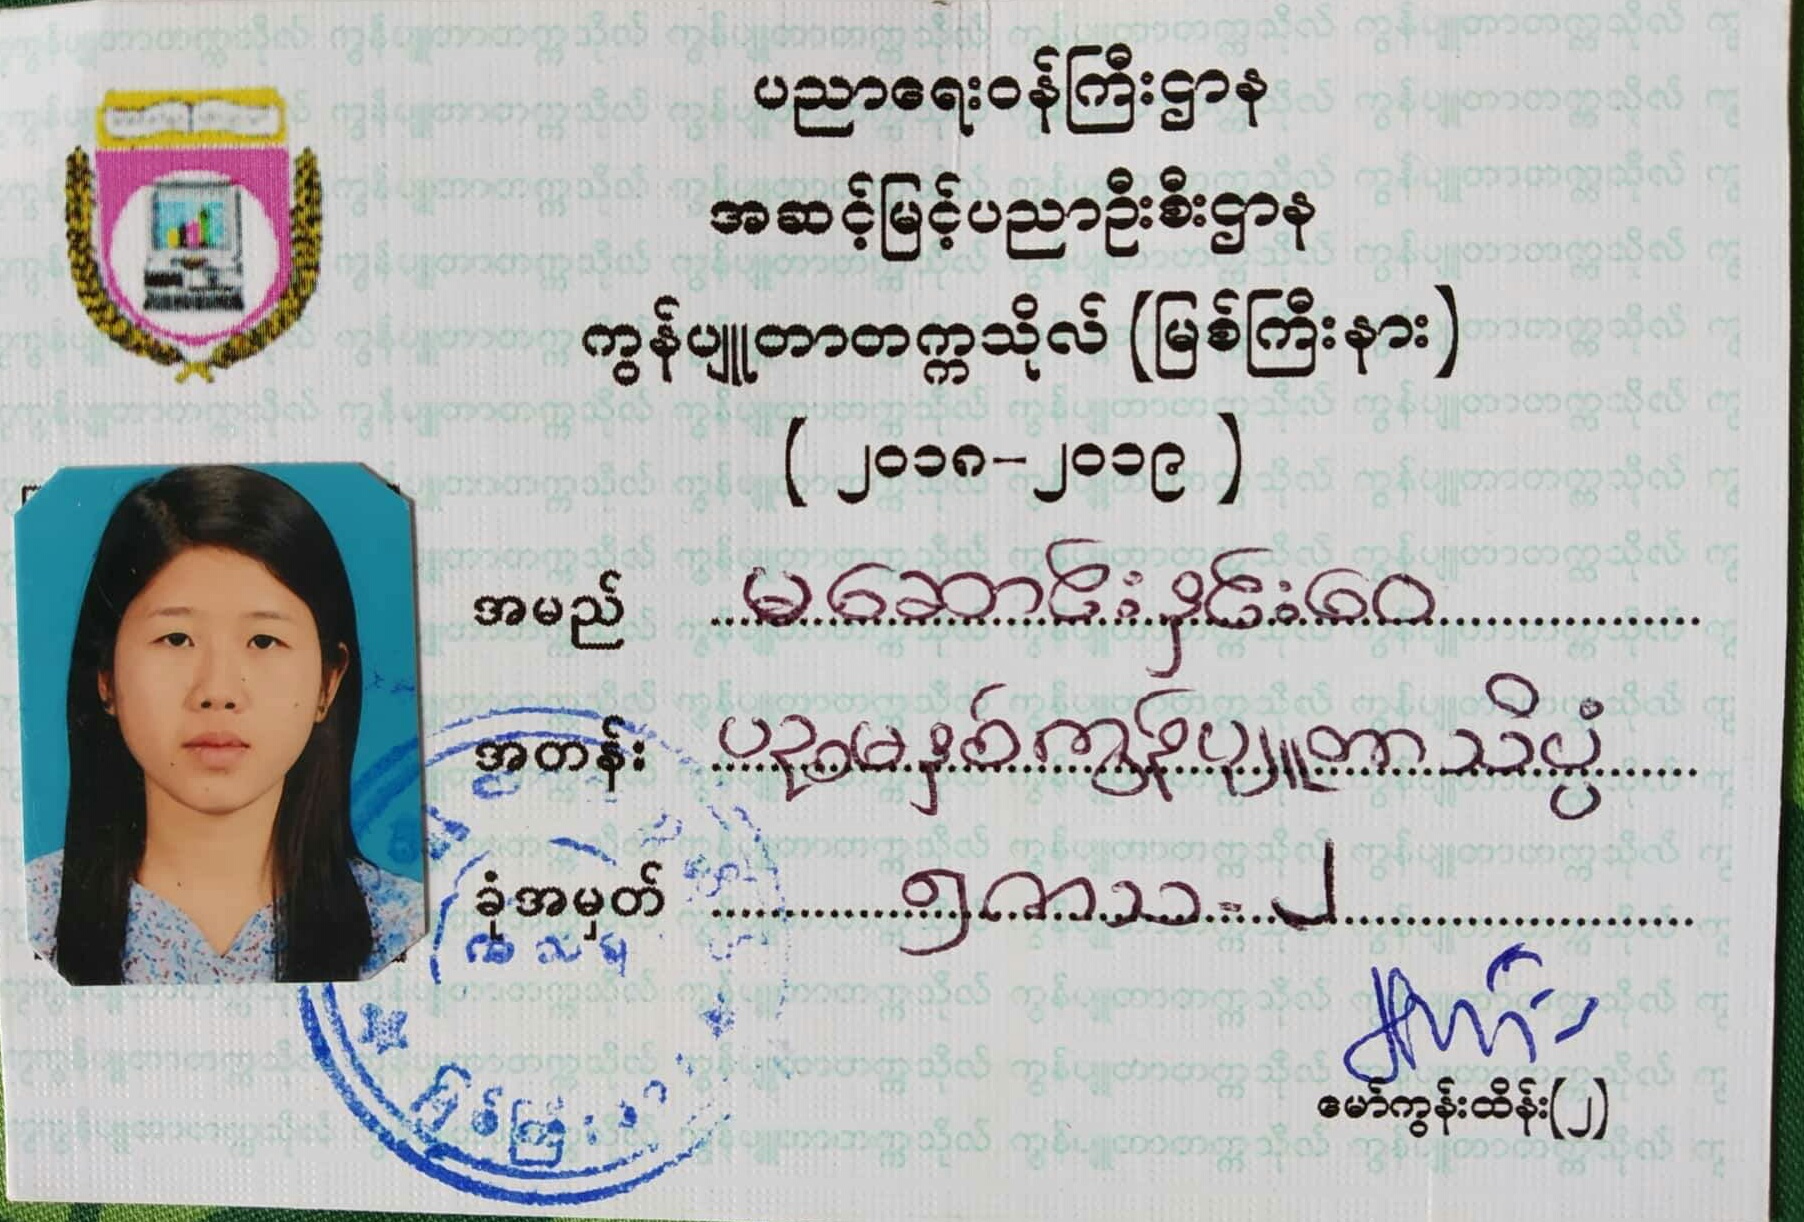 ပညာရေးဝန်ကြီးဌာန
အဆင့်မြင့်ပညာဦးစီးဌာန
ကွန်ပျူတာတက္ကသိုလ် (မြစ်ကြီးနား)
( ၂၀၁၈–၂၀၁၉ )
အမည် မဆောင်းနှင်းဝေ
အတန်း ပဉ္စမနှစ်ကွန်ပျူတာသိပ္ပံ
ခုံအမှတ် ၅ကသ-၂
မြစ်ကြီးနား
မော်ကွန်းထိန်း(၂)